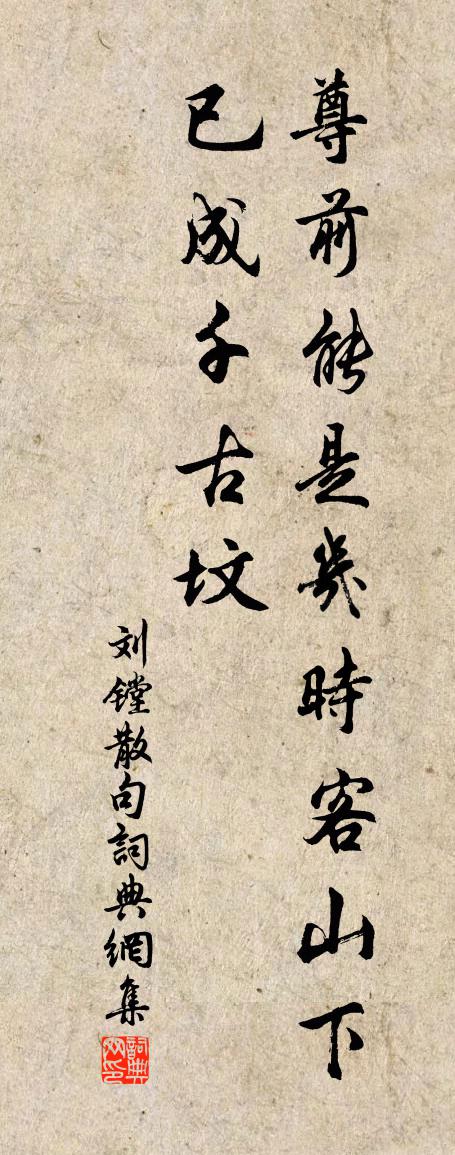 尊前能是幾時客山下
已成千古坟
刘镗散句詞典網集
詞典
网印